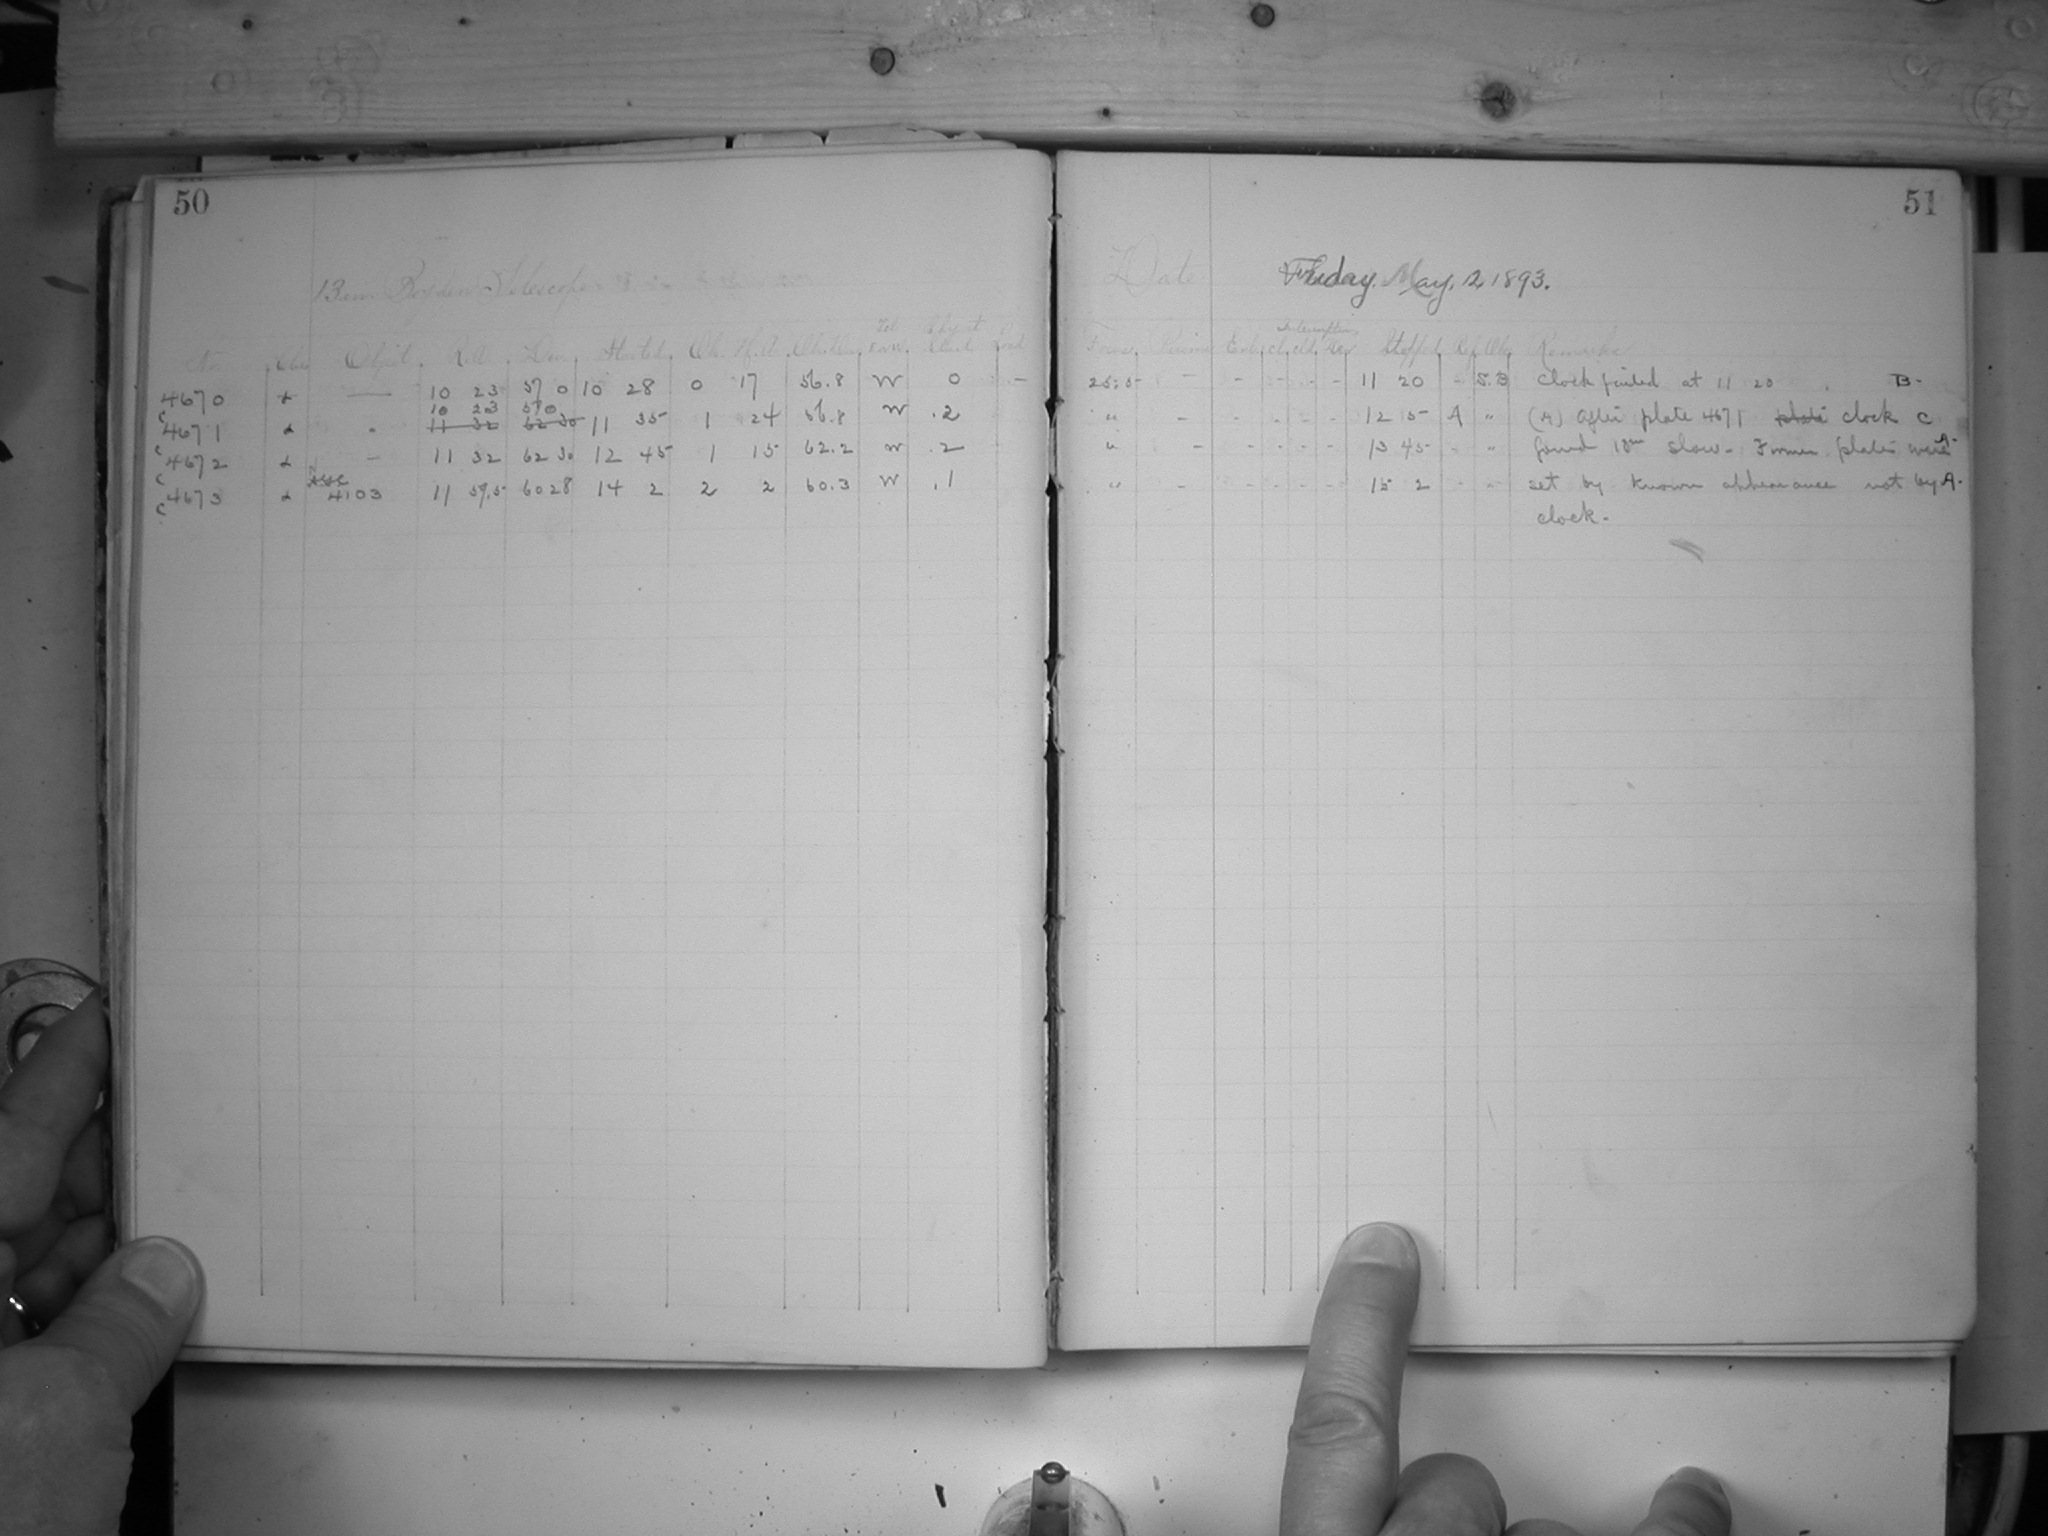 50
13 in. Boyden Telescope
No. Class Object R.A. Dec. Started Ob. H.A. Ob. Dec.
4670 α — 10 23 57 0 10 28 0 17 56.8 W 0 -
10 23 57 0
C 4671 α " 11 32 62 30 11 35 1 24 56.8 W .2
C 4672 α — 11 32 62 30 12 45 1 15 62.2 W .2
C 4673 α 4103 11 59.5 60 28 14 2 2 2 60.3 W .1
C
51
Date May, 2 1893.
Interruptions
Focus Stopped Ref. Ob. Remarks
25.5 - - - - - 11 20 - S.B Clock failed at 11 20 . B-
" - - - - - 12 15 A " (A) After plate 4671 plate clock C
" - - - - - 13 45 - " found 18m slow - Former plates were A-
" - - - - - 15 2 - " set by known appearance not by A-
clock.